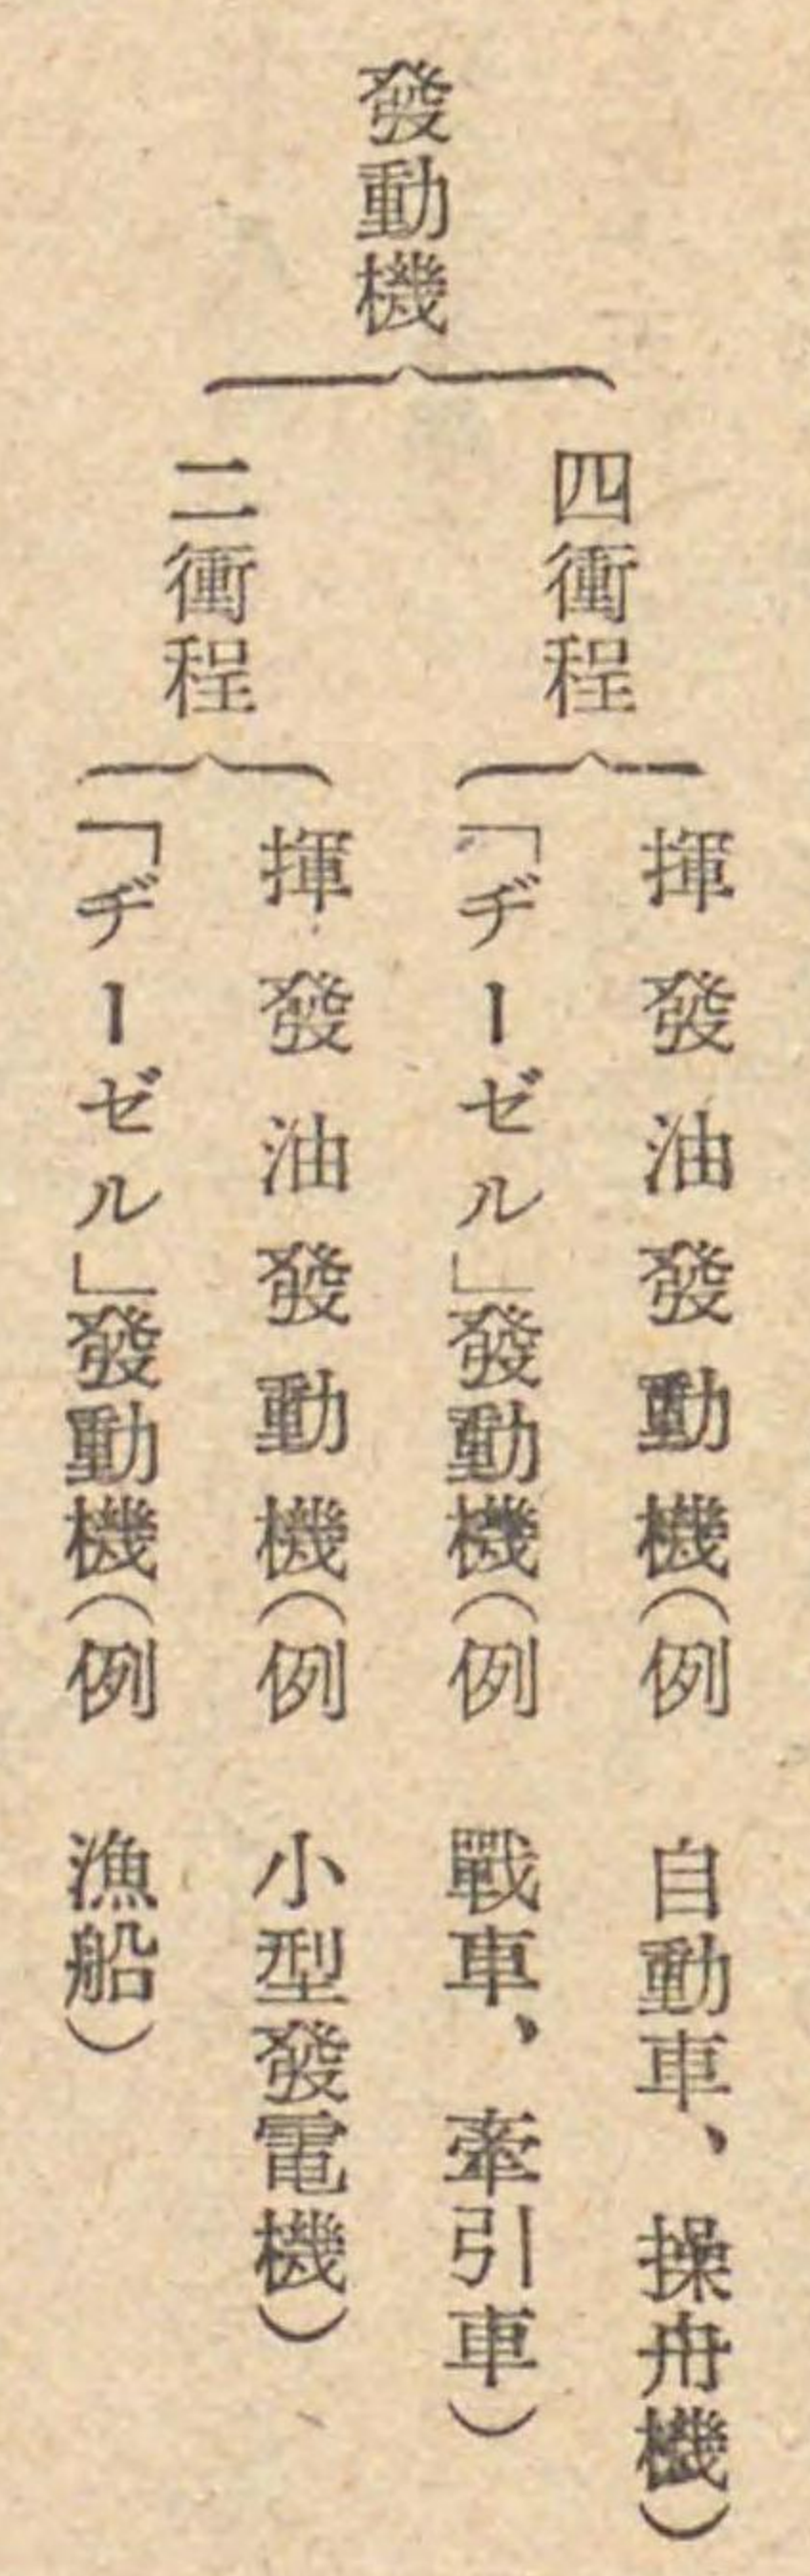 發動機
四衝程
揮發油發動機(例　自動車、操舟機)
「ヂーゼル」發動機(例　戰車、牽引車)
二衝程
揮發油發動機(例　小型發電機)
「ヂーゼル」發動機(例　漁船)